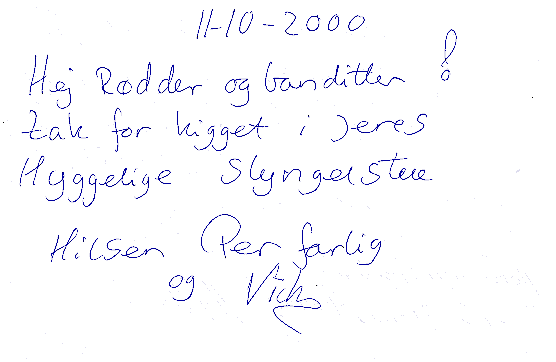 11-10-2000
Hej Rødder og banditter !
tak for kigget i Jeres
Hyggelige Slyngelstue.
Hilsen Per farlig
og Vicki